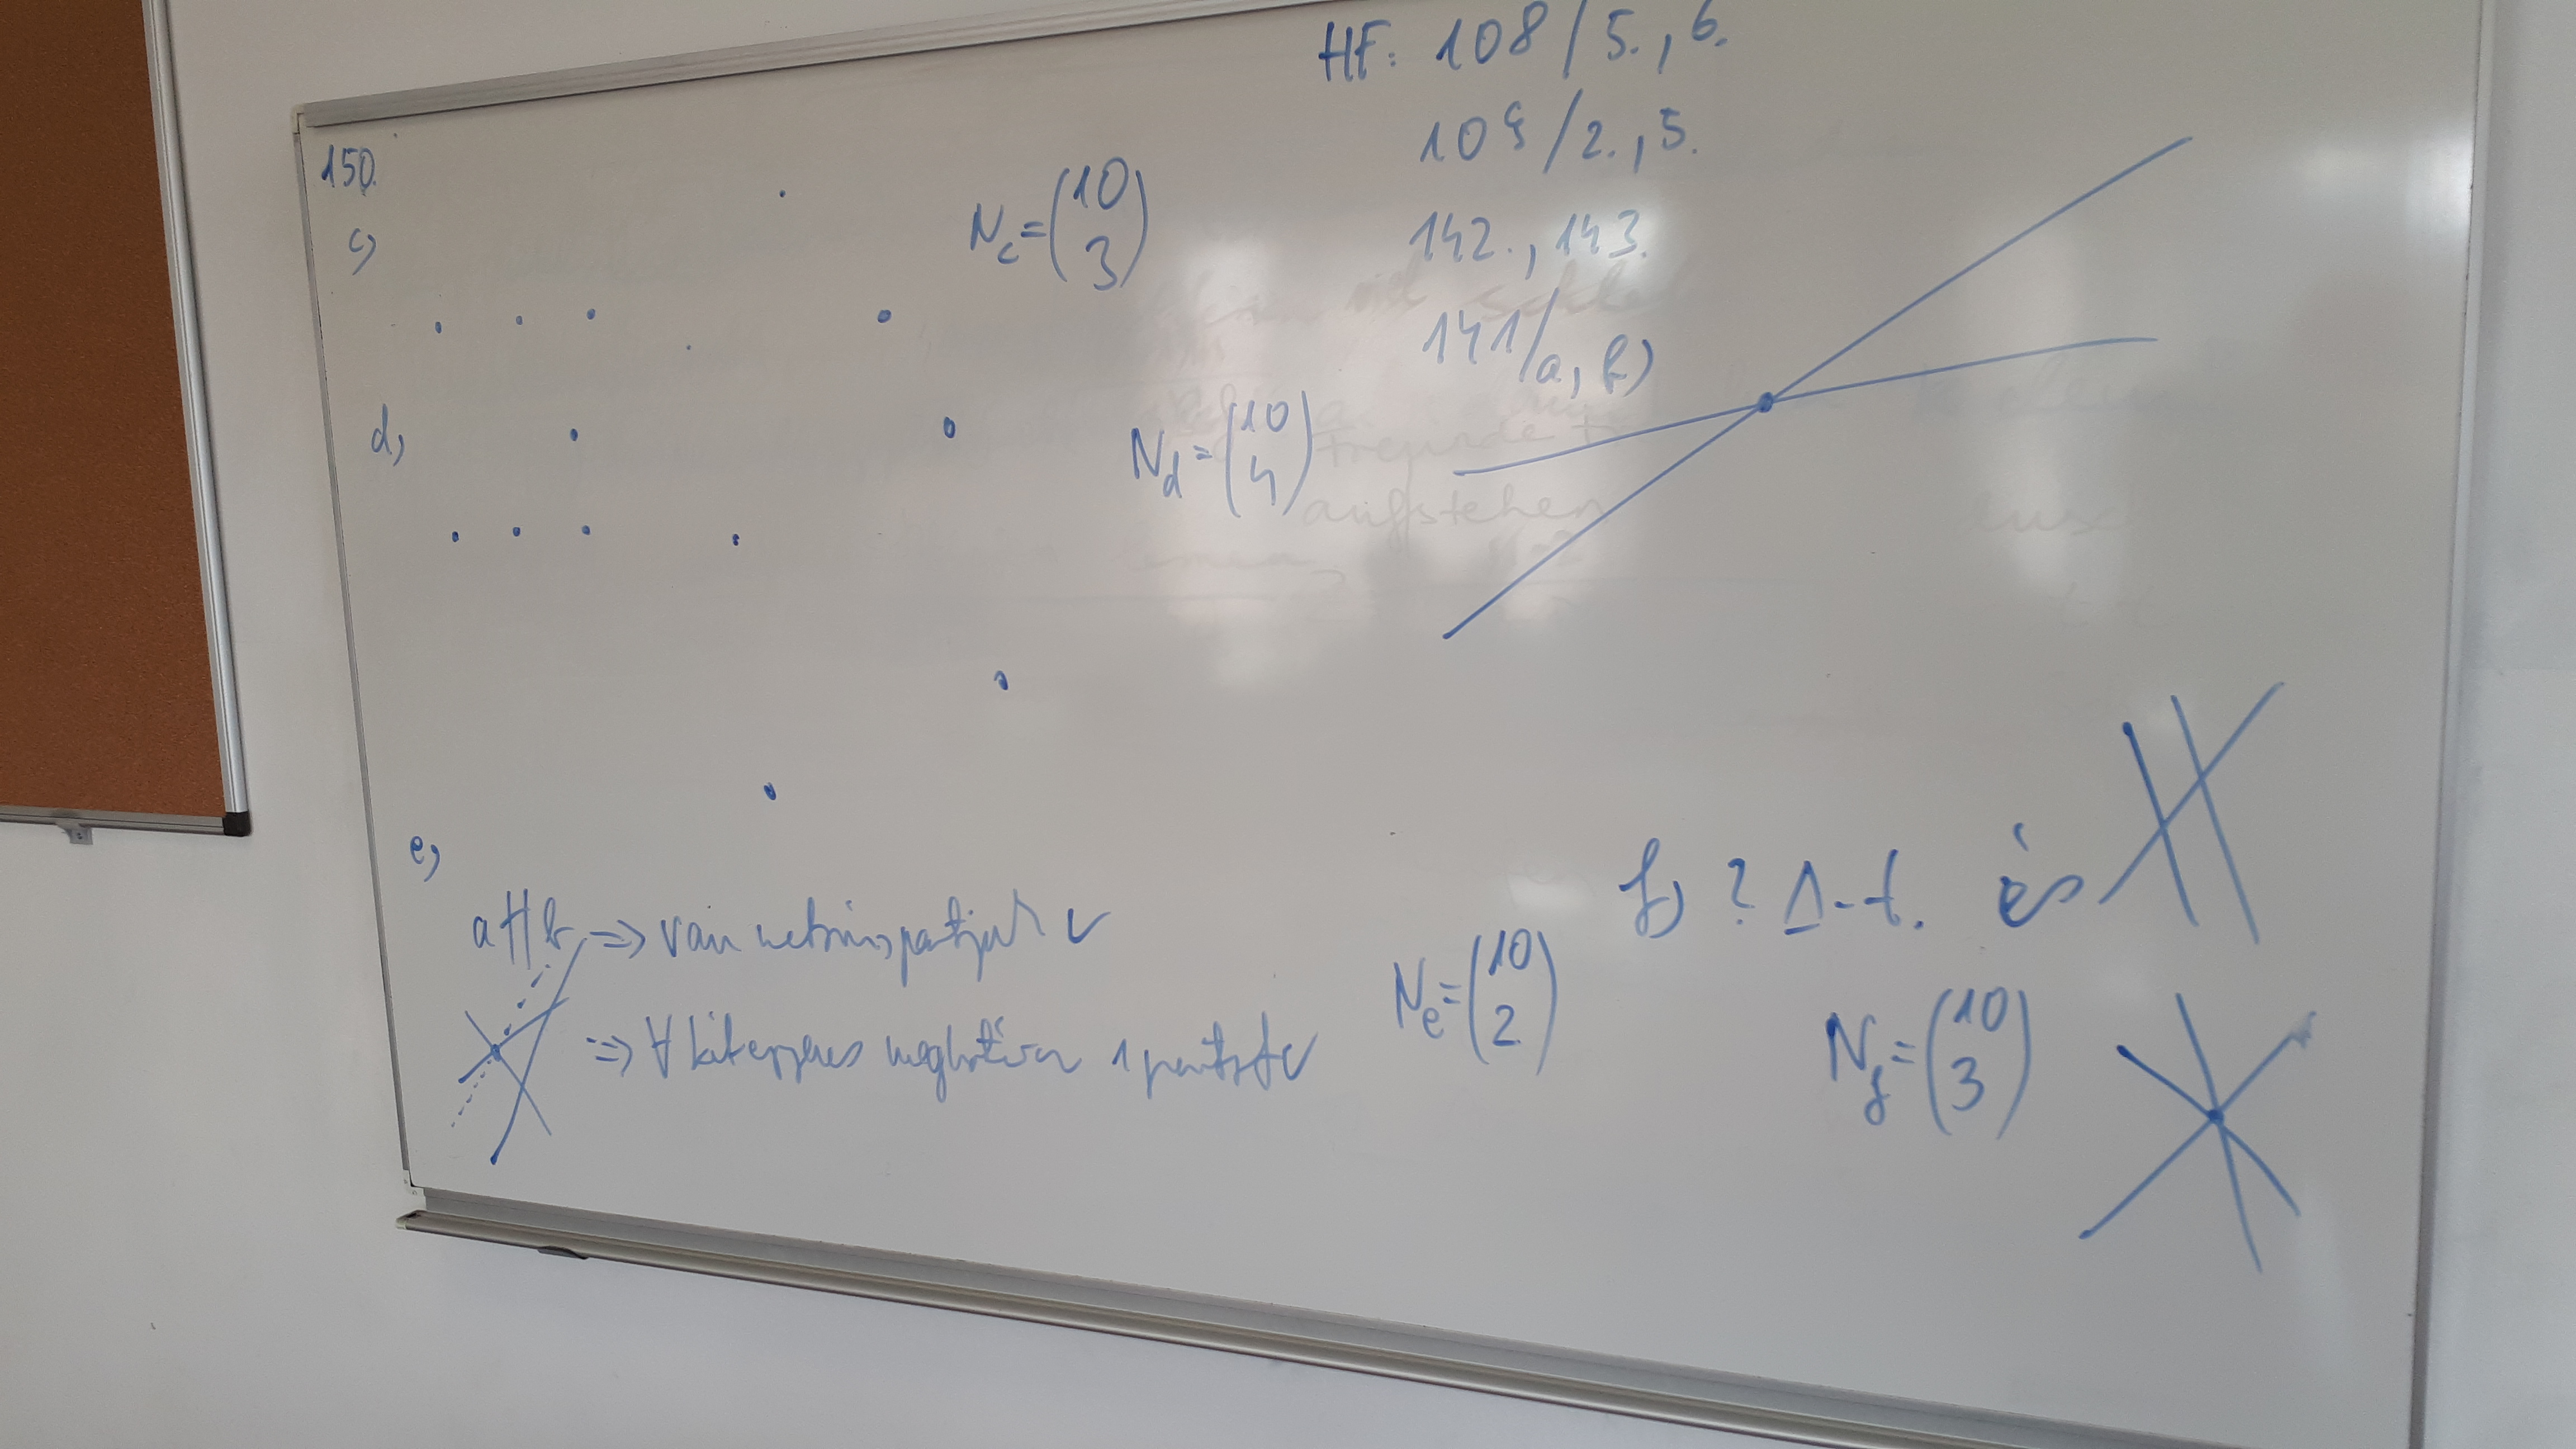 HF: 108/5., 6.
109/2., 5.
142., 143.
141/a, f)
150.
c)
N_c = (10 3)
d)
N_d = (10 4)
e)
a ∦ b => van metszéspontjuk ✓
=> ∀ két egyenes meghatároz 1 pontot ✓
N_e = (10 2)
f) ? Δ-t. és
N_f = (10 3)
Freunde
aufstehen